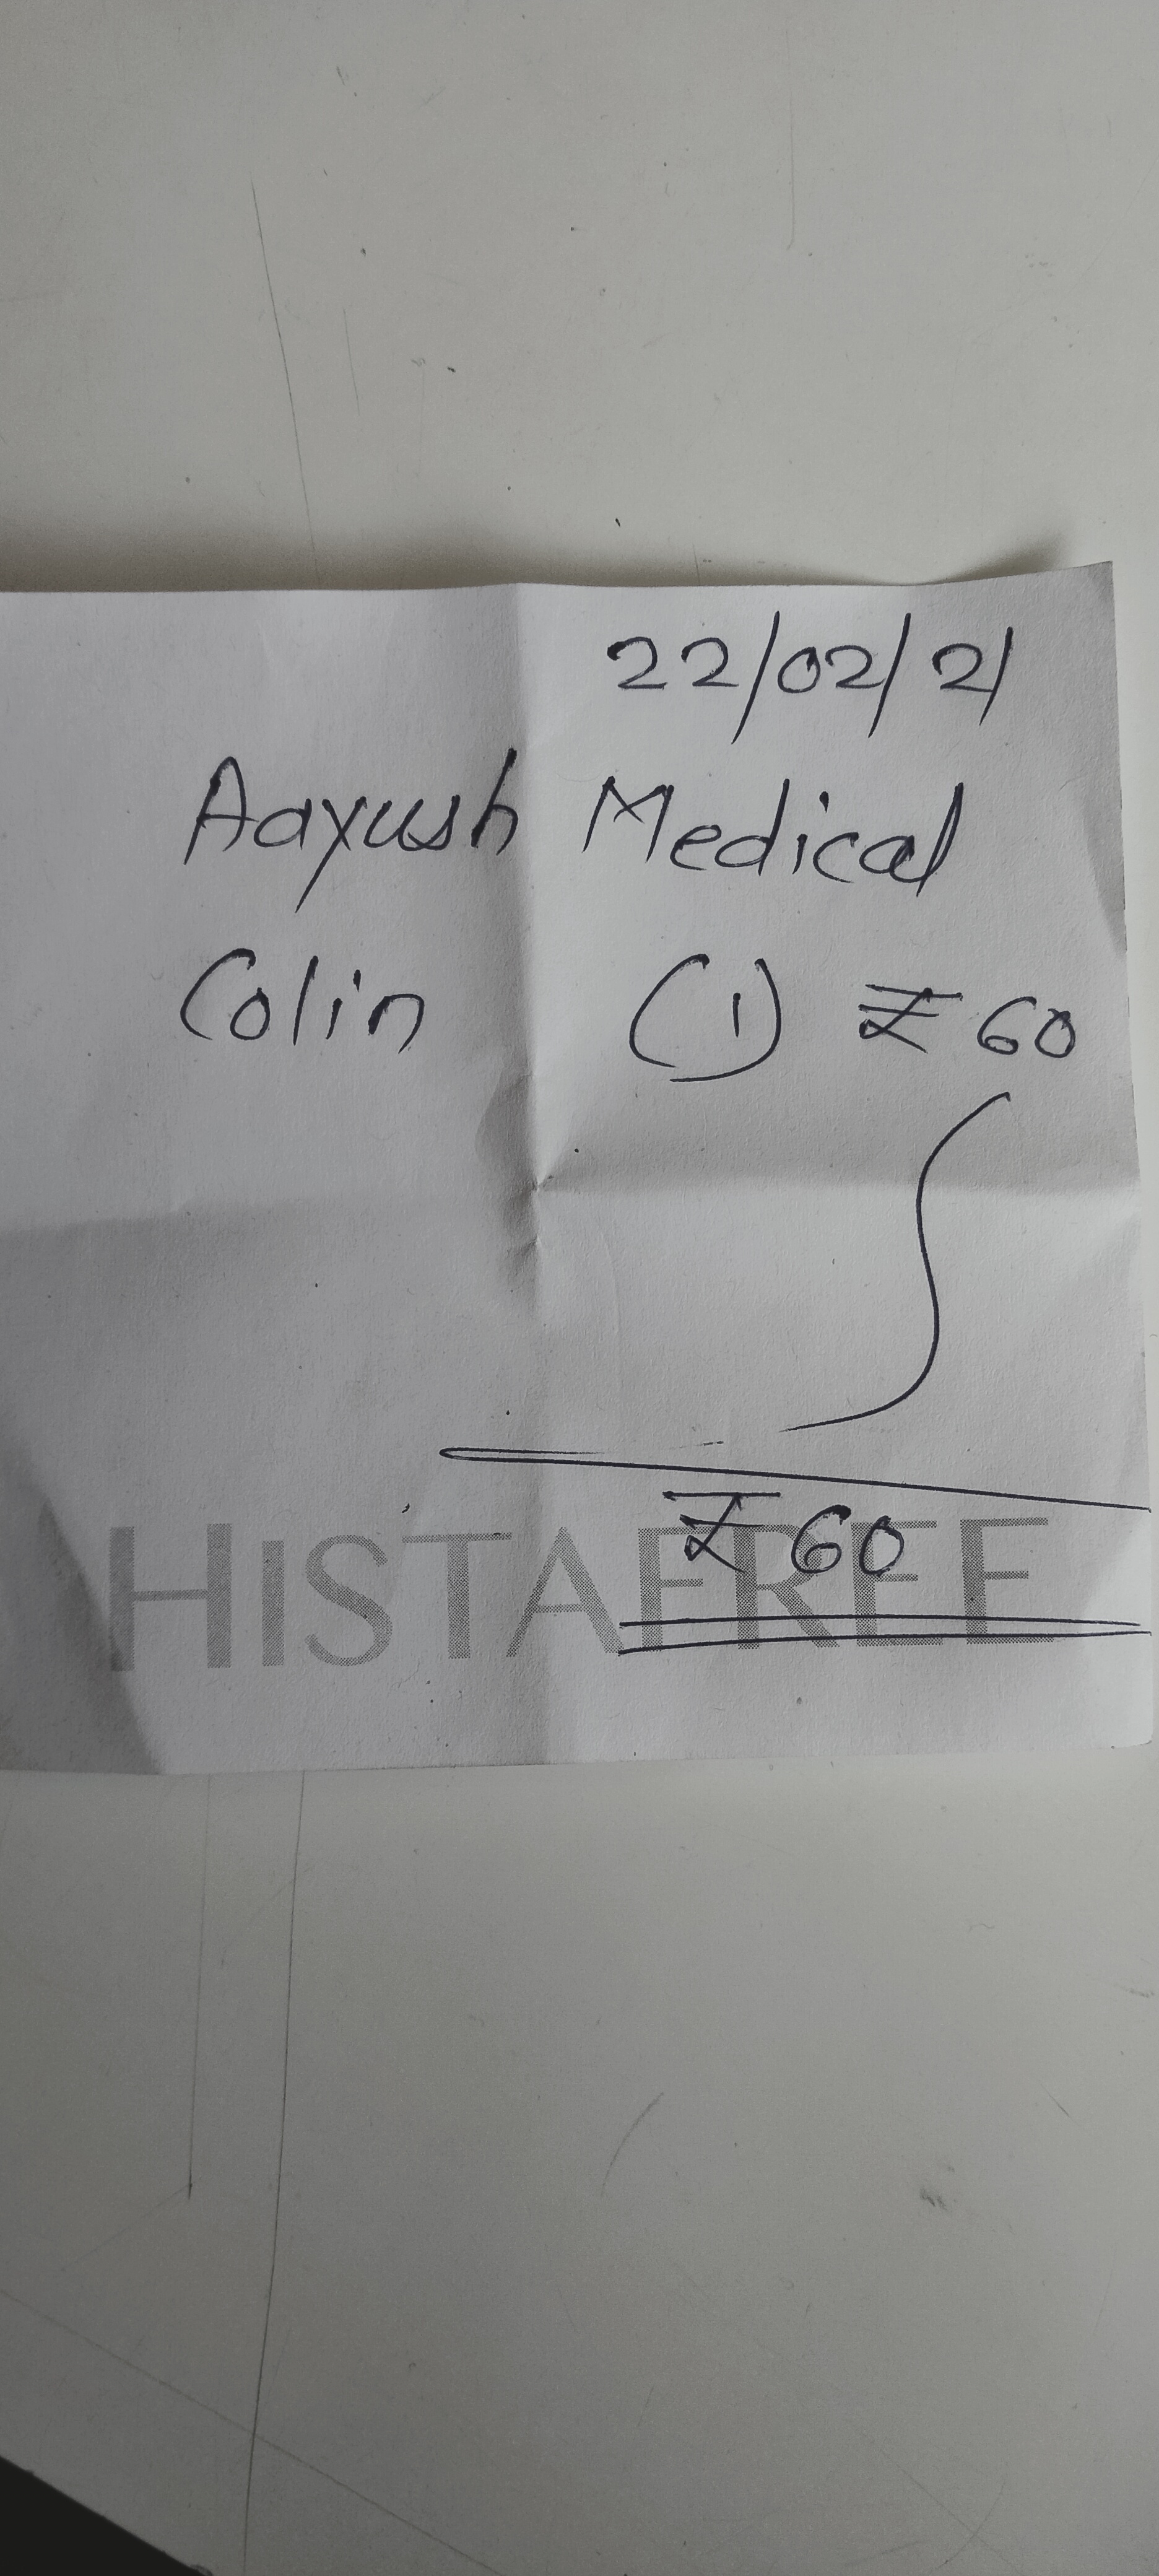 22/02/21
Aayush Medical
Colin (1) ₹ 60
₹ 60
HISTAFREE